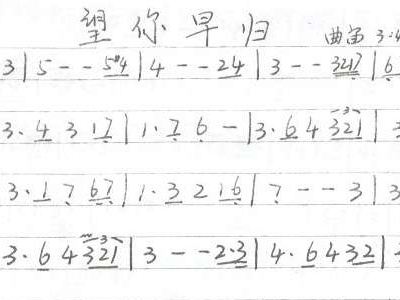 望你早归 曲笛 3·4
3 | 5 - - 5#4 | 4 - - 24 | 3 - - 3217 | 6
3· 4 3 17 | 1· 7 6 - | 3· 6 4 321 | 3
3· 1 7 67 | 1· 3 2 16 | 7 - - 3 | 3
3· 6 4 321 | 3 - - 2·3 | 4· 6 4 32 |